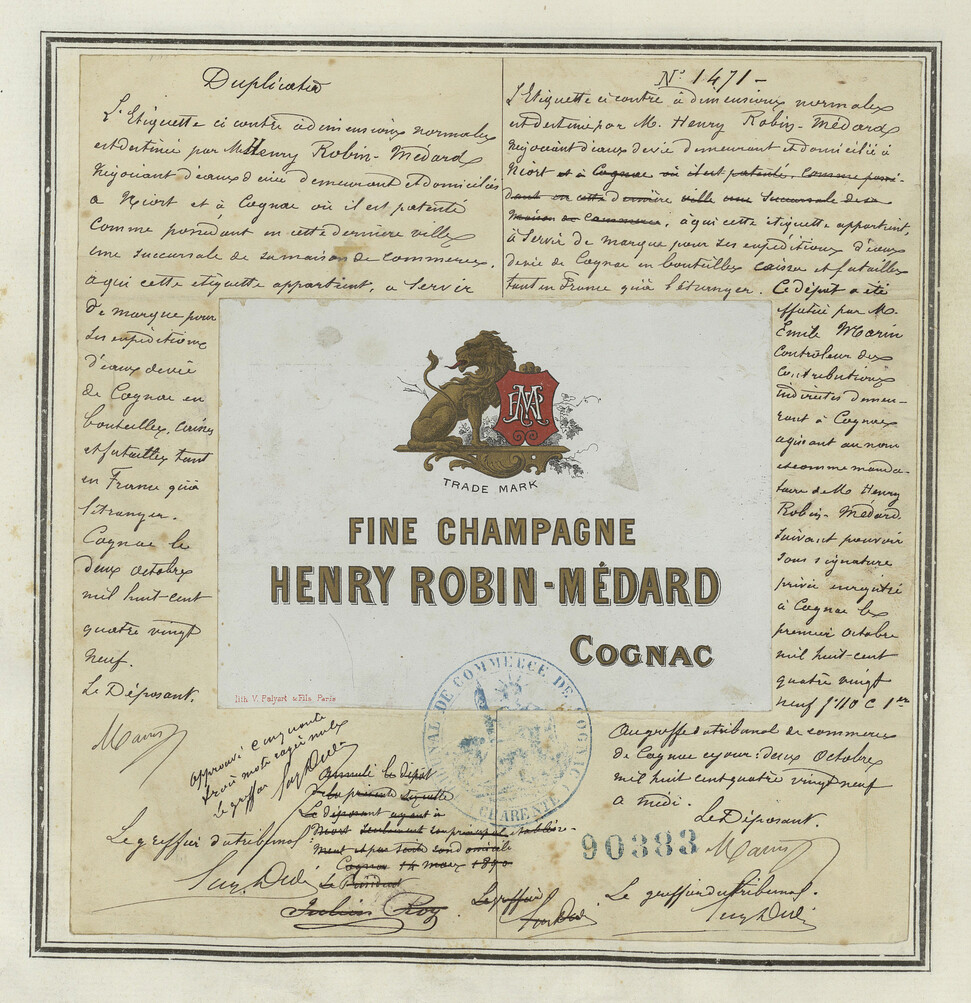 Duplicata
L'Etiquette ci contre à dimensions normales
est destiné par M. Henry Robin-Médard
Négociant d'eaux de vie demeurant et domicilié
à Niort et à Cognac où il est patenté
comme possédant en cette dernière ville
une succursale de sa maison de commerce,
à qui cette étiquette appartient, à servir
de marque pour
ses expéditions
d'eaux de vie
de Cognac en
bouteilles, caisses
et futailles tant
en France qu'à
l'étranger.
Cognac le
deux octobre
mil huit-cent
quatre vingt
neuf.
Le Déposant.
Marin
N° 1471-
L'Etiquette ci contre à dimensions normales
est destiné par M. Henry Robin-Médard
Négociant d'eaux de vie demeurant et domicilié à
Niort et à Cognac où il est patenté, comme possé-
dant en cette dernière ville une succursale de sa
maison de commerce, à qui cette étiquette appartient,
à servir de marque pour ses expéditions d'eaux
de vie de Cognac en bouteilles caisses et futailles
tant en France qu'à l'étranger. Ce dépôt a été
effectué par M.
Emile Marin
Contrôleur des
Contributions
indirectes demeu-
rant à Cognac
agissant au nom
et comme manda-
taire de M. Henry
Robin-Médard
suivant pouvoir
sous signature
privée enregistré
à Cognac le
premier octobre
mil huit-cent
quatre vingt
neuf f° 110 C 1er
Au greffe du tribunal de commerce
de Cognac ce jour: deux Octobre
mil huit cent quatre vingt neuf
à midi.
Le Déposant.
Marin
Le greffier du tribunal.
TRADE MARK
FINE CHAMPAGNE
HENRY ROBIN-MÉDARD
COGNAC
lith. V. Palyart & Fils Paris
TRIBUNAL DE COMMERCE DE COGNAC
(CHARENTE)
90383
approuvé cinquante
trois mots rayés nuls
Le greffier
Le greffier du tribunal
Annulé le dépôt
de la présente étiquette
Le déposant ayant à
Niort seulement son principal établisse-
ment et par suite son domicile
Cognac 14 mars 1890
Le Président
Julien Roy
Le greffier